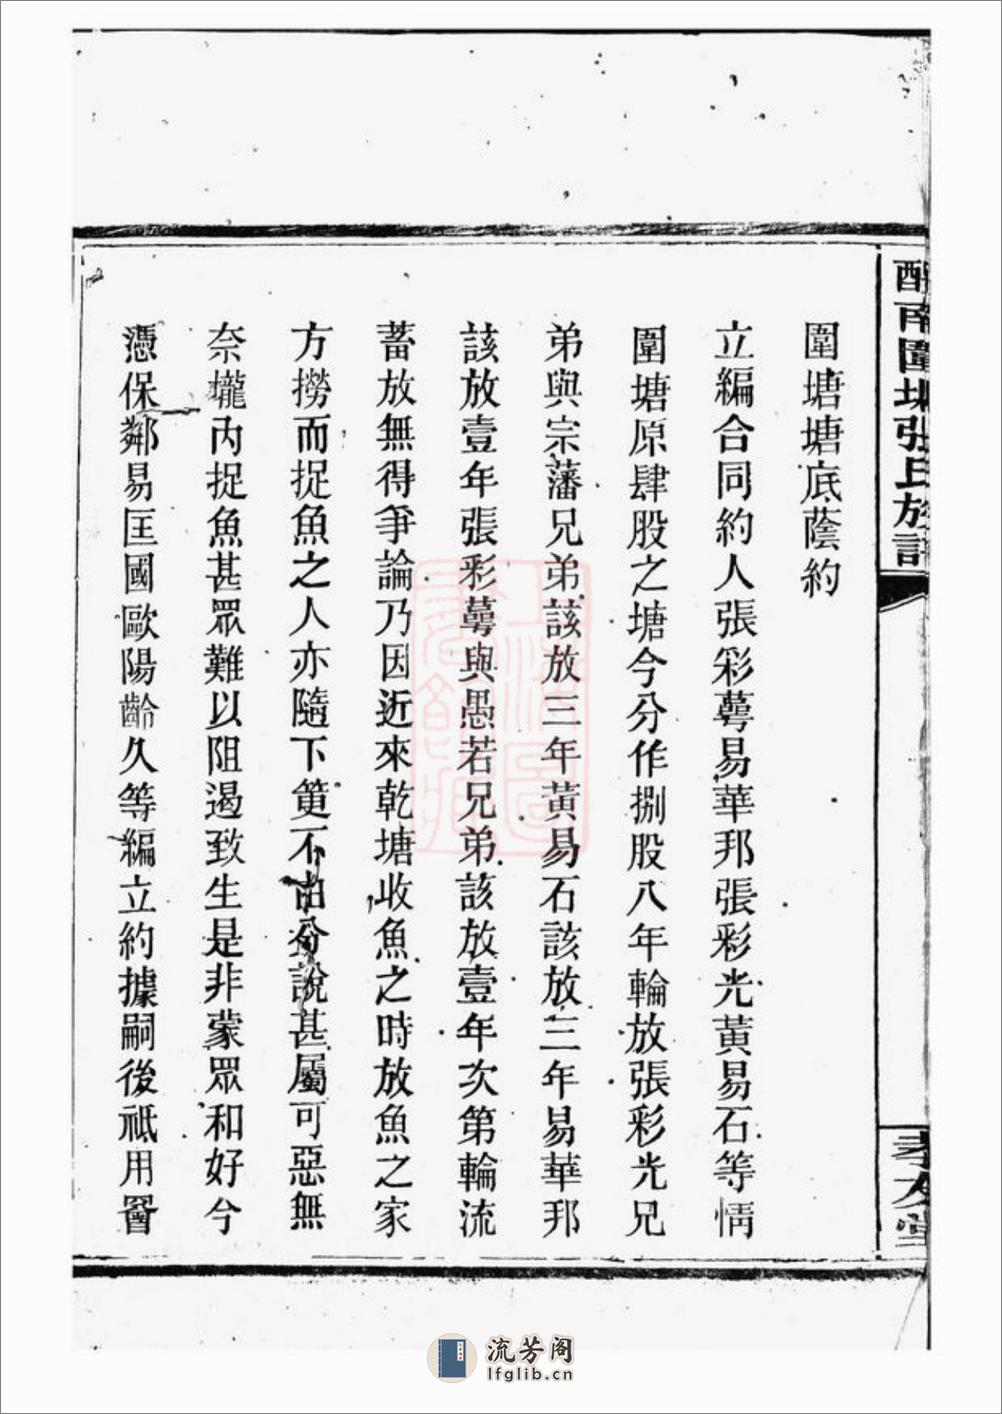 醴南圍塘張氏族譜
孝友堂
圍塘塘底蔭約
立編合同約人張彩蕚易華邦張彩光黃易石等情
圍塘原肆股之塘今分作捌股八年輪放張彩光兄
弟與宗藩兄弟該放三年黃易石該放三年易華邦
該放壹年張彩蕚與愚若兄弟該放壹年次第輪流
蓄放無得爭論乃因近來乾塘收魚之時放魚之家
方撈而捉魚之人亦隨下筫不由分說甚屬可惡無
奈壠內捉魚甚眾難以阻遏致生是非蒙眾和好今
憑保鄰易匡國歐陽齡久等編立約據嗣後祇用罾
上海圖書館藏
流芳阁
lfglib.cn